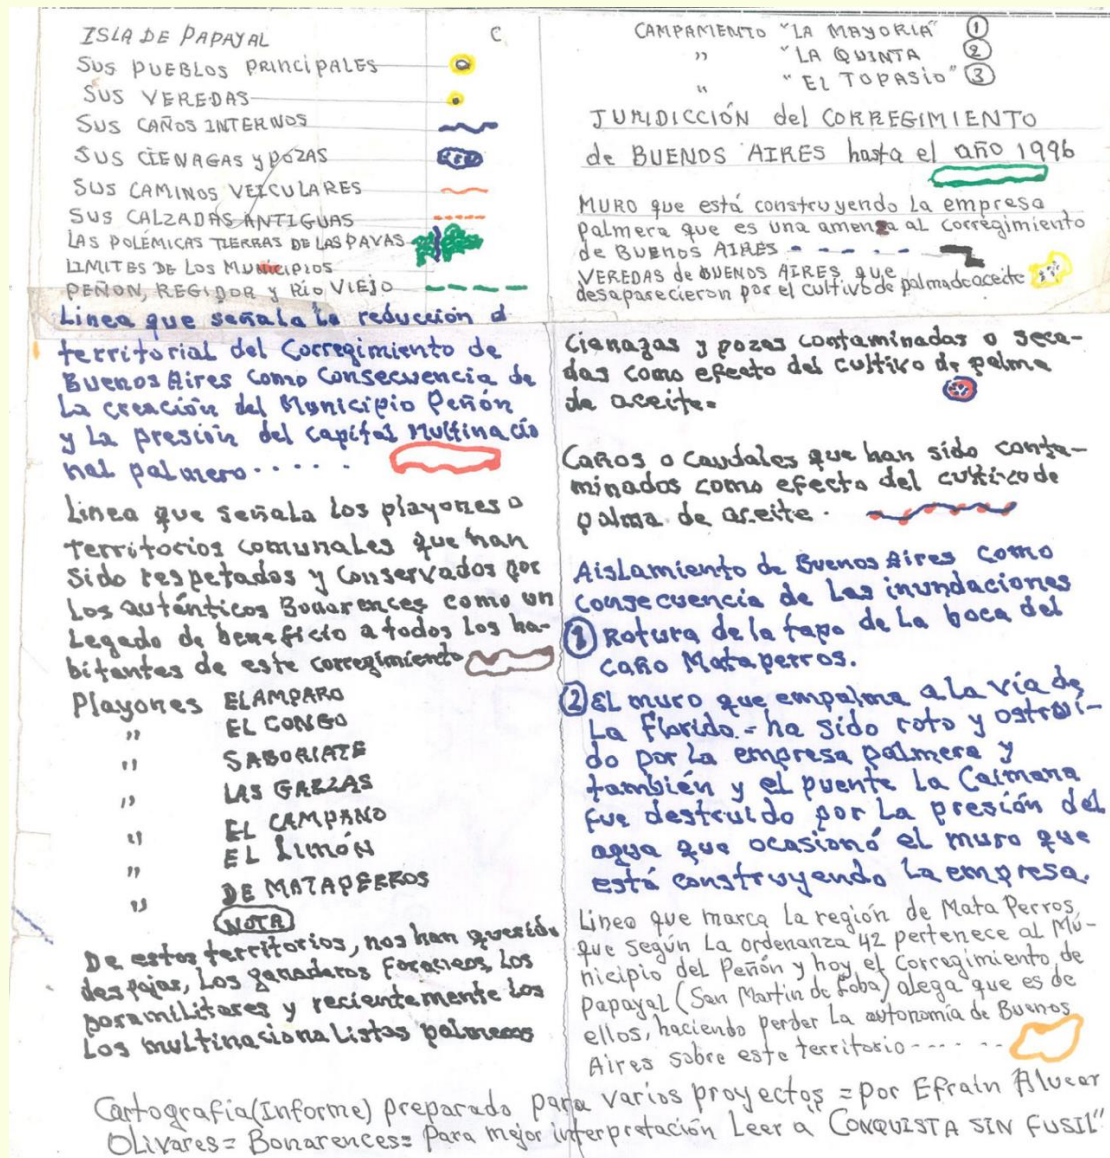 ISLA DE PAPAYAL C
SUS PUEBLOS PRINCIPALES
SUS VEREDAS
SUS CAÑOS INTERNOS
SUS CIENAGAS y POZAS
SUS CAMINOS VEICULARES
SUS CALZADAS ANTIGUAS
LAS POLÉMICAS TIERRAS DE LAS PAVAS
LIMITES DE LOS MUNICIPIOS
PEÑON, REGIDOR y RÍO VIEJO
Linea que señala la reducción d
territorial del Corregimiento de
Buenos Aires como consecuencia de
La creación del Municipio Peñón
y La presión del capital Multinacio
nal palmero . . . . .
Linea que señala los playones o
territorios comunales que han
sido respetados y conservados por
Los auténticos Bonarences como un
Legado de beneficio a todos los ha-
bitantes de este corregimiento
Playones EL AMPARO
" EL CONGO
" SABORIATE
" LAS GARZAS
" EL CAMPANO
" EL LIMÓN
" DE MATAPERROS
NOTA
De estos territorios, nos han querido
despojar, Los ganaderos foraneos, Los
paramilitares y recientemente Los
Los multinacionalistas palmeros
CAMPAMENTO "LA MAYORIA" 1
" "LA QUINTA 2
" "EL TOPASIO" 3
JURIDICCIÓN del CORREGIMIENTO
de BUENOS AIRES hasta el año 1996
MURO que está construyendo La empresa
palmera que es una amenza al corregimiento
de BUENOS AIRES - - - -
VEREDAS de BUENOS AIRES que
desaparecieron por el cultivo de palma de aceite
Cienagas y pozas contaminadas o seca-
das como efecto del cultivo de palma
de aceite.
Caños o Caudales que han sido conta-
minados como efecto del cultivo de
palma de aceite.
Aislamiento de Buenos Aires como
consecuencia de Las inundaciones
1 Rotura de la tapa de La boca del
caño Mataperros.
2 EL muro que empalma a la vía de
La Florida - ha sido roto y ostrui-
do por La empresa palmera y
también y el puente La Caimana
fue destruido por La presión del
agua que ocasionó el muro que
está construyendo La empresa.
Linea que marca la región de Mata Perros,
que según La ordenanza 42 pertenece al Mú-
nicipio del Peñón y hoy el Corregimiento de
Papayal (San Martin de Loba) alega que es de
ellos, haciendo perder La autonomía de Buenos
Aires sobre este territorio - - - - - -
Cartografía (Informe) preparado para varios proyectos = por Efraín Alvear
Olivares = Bonarences = Para mejor interpretación Leer a "CONQUISTA SIN FUSIL"